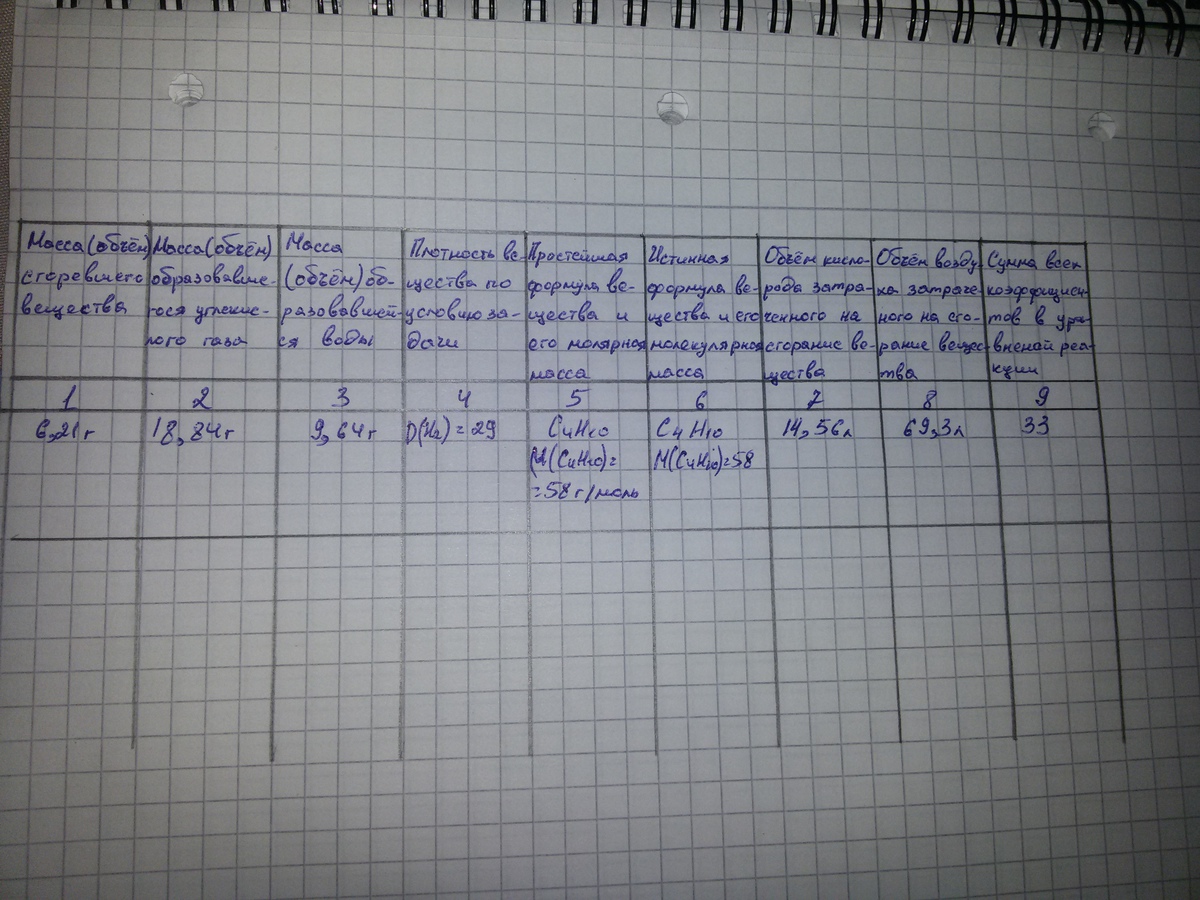 Масса(объём)
сгоревшего
вещества
Масса(объём)
образовавше-
гося углекис-
лого газа
Масса
(объём)бо-
разовавшей-
ся воды
Плотность ве-
щества по
условию за-
дачи
Простейшая
формула ве-
щества и
его молярная
масса
Истинная
формула ве-
щества и его
молекулярная
масса
Объём кисло-
рода затра-
ченного на
сгорание ве-
щества
Объём возду
ха затраче-
ного на сго-
рание вещес
тва
Сумма всех
коэффициен-
тов в ура-
внений реа-
кции
1 2 3 4 5 6 7 8 9
6,21г
18,84г
9,64г
D(H₂)=29
C₄H₁₀
M(C₄H₁₀)=
=58г/моль
C₄H₁₀
M(C₄H₁₀)=58
14,56л
69,3л
33